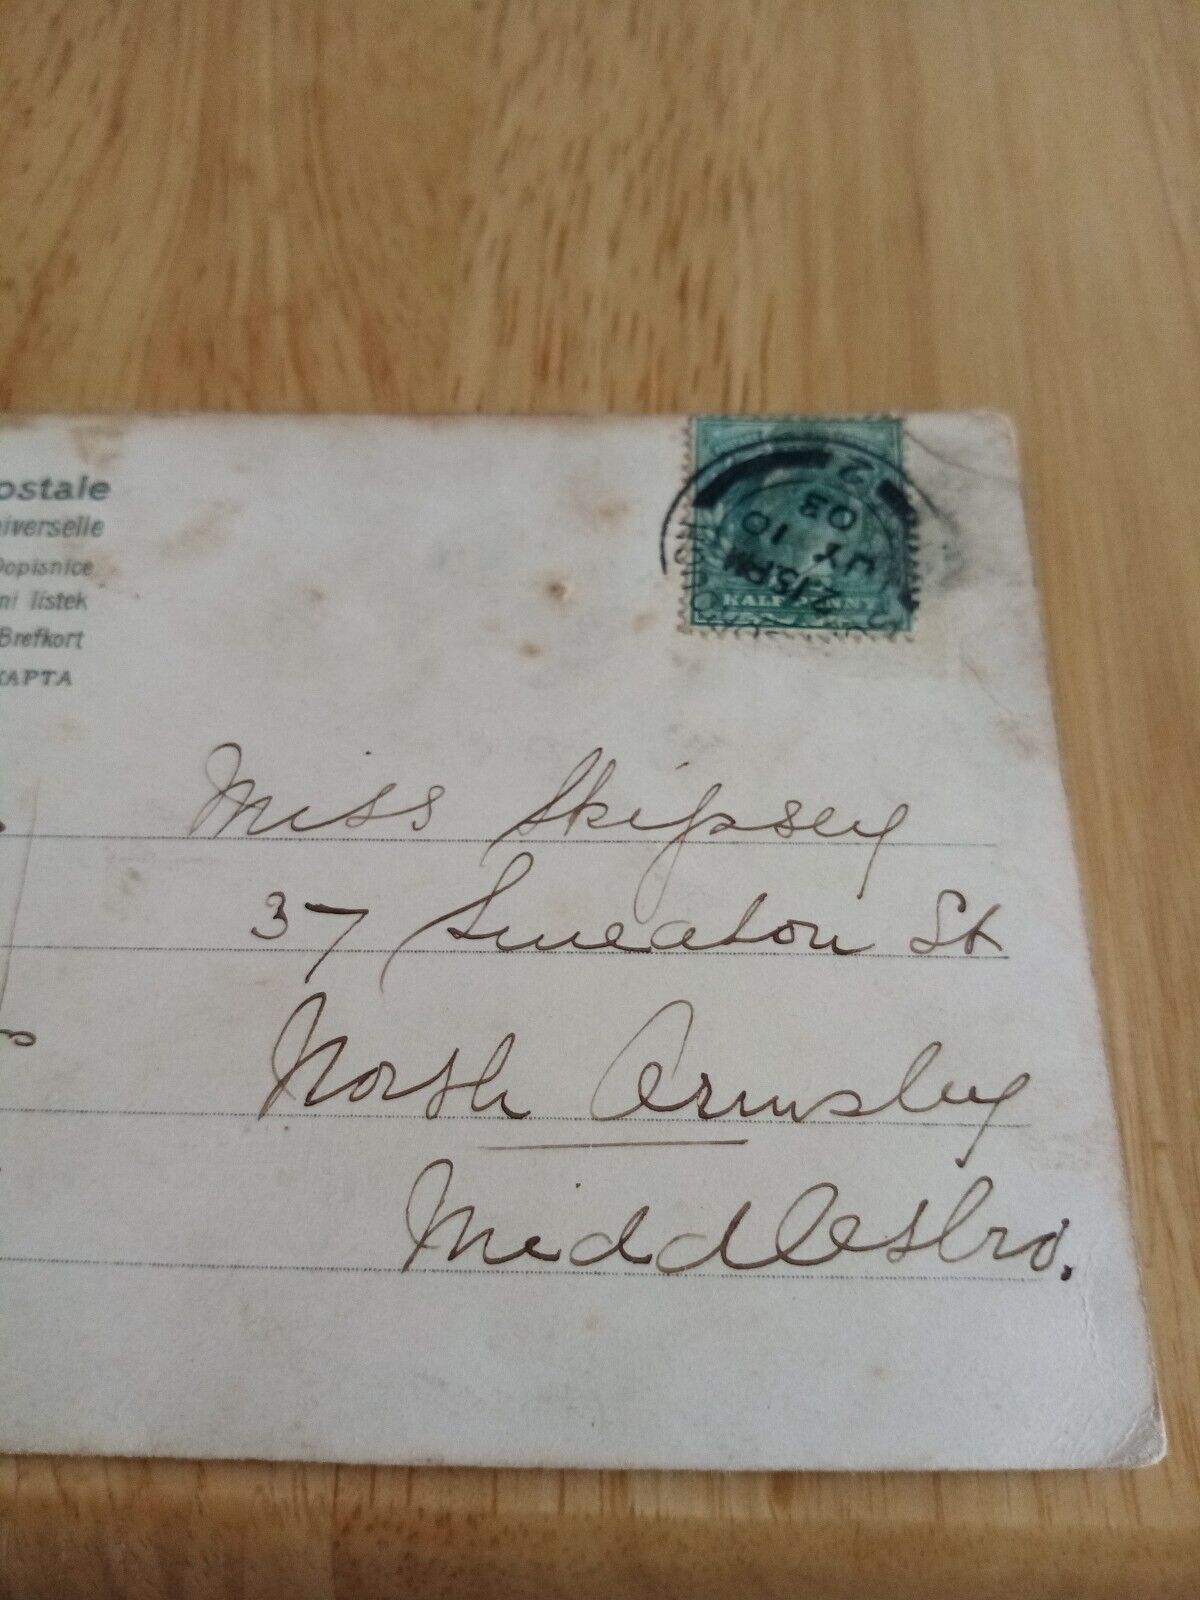 ostale
iverselle
Dopisnice
ni listek
Brefkort
KAPTA
2
2.15 PM
JY 10
03
HALFPENNY
Miss Skipsey
37 Smeaton St
North Ormsby
Middlesbro.